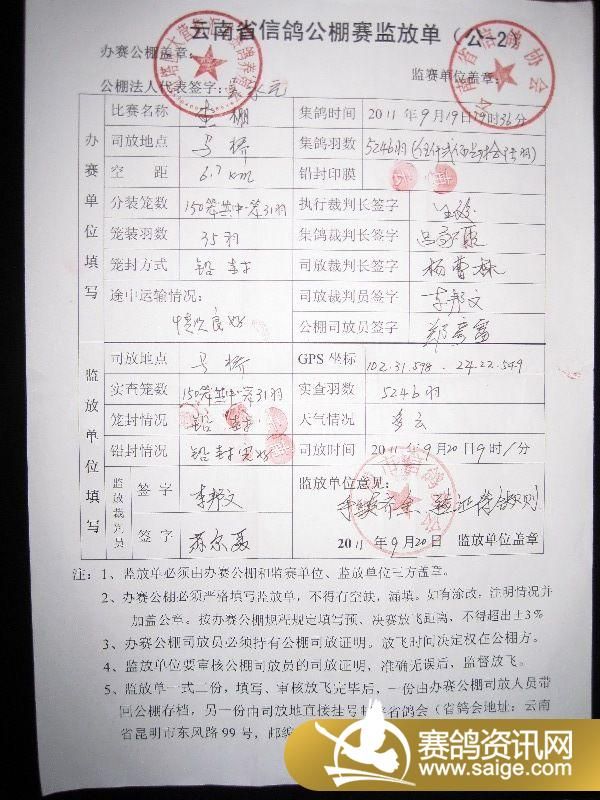 云南省信鸽公棚赛监放单（公-2）
办赛公棚盖章：
监赛单位盖章：
公棚法人代表签字：
办赛单位填写
比赛名称 集鸽时间 2011年9月19日19时36分
司放地点 号桥 集鸽羽数 5246羽
空距 6.7km 铅封印膜
分装笼数 150笼其中一笼31羽 执行裁判长签字
笼装羽数 35羽 集鸽裁判长签字
笼封方式 铅封 司放裁判长签字
途中运输情况： 司放裁判员签字 李邦文
情况良好 公棚司放员签字
监放单位填写
司放地点 号桥 GPS 坐标 102.31.598 . 24.22.549
实查笼数 150笼其中一笼31羽 实查羽数 5246羽
笼封情况 铅封 天气情况 多云
铅封情况 铅封完好 司放时间 2011年9月20日9时1分
监放裁判员
签字 李邦文 监放单位意见：
手续齐全 验证符合规则
签字 苏尔聂 2011年9月20日 监放单位盖章
注：1、监放单必须由办赛公棚和监赛单位、监放单位三方盖章。
2、办赛公棚必须严格填写监放单，不得有空缺，漏填。如有涂改，注明情况并
加盖公章。按办赛公棚规程规定填写预、决赛放飞距离，不得超出±3%
3、办赛公棚司放员必须持有公棚司放证明。放飞时间决定权在公棚方。
4、监放单位要审核公棚司放员的司放证明，准确无误后，监督放飞。
5、监放单一式二份，填写、审核放飞完毕后，一份由办赛公棚司放人员带
回公棚存档，另一份由司放地直接挂号 省鸽会（省鸽会地址：云南
省昆明市东风路99号，邮编
赛鸽资讯网
www.saige.com